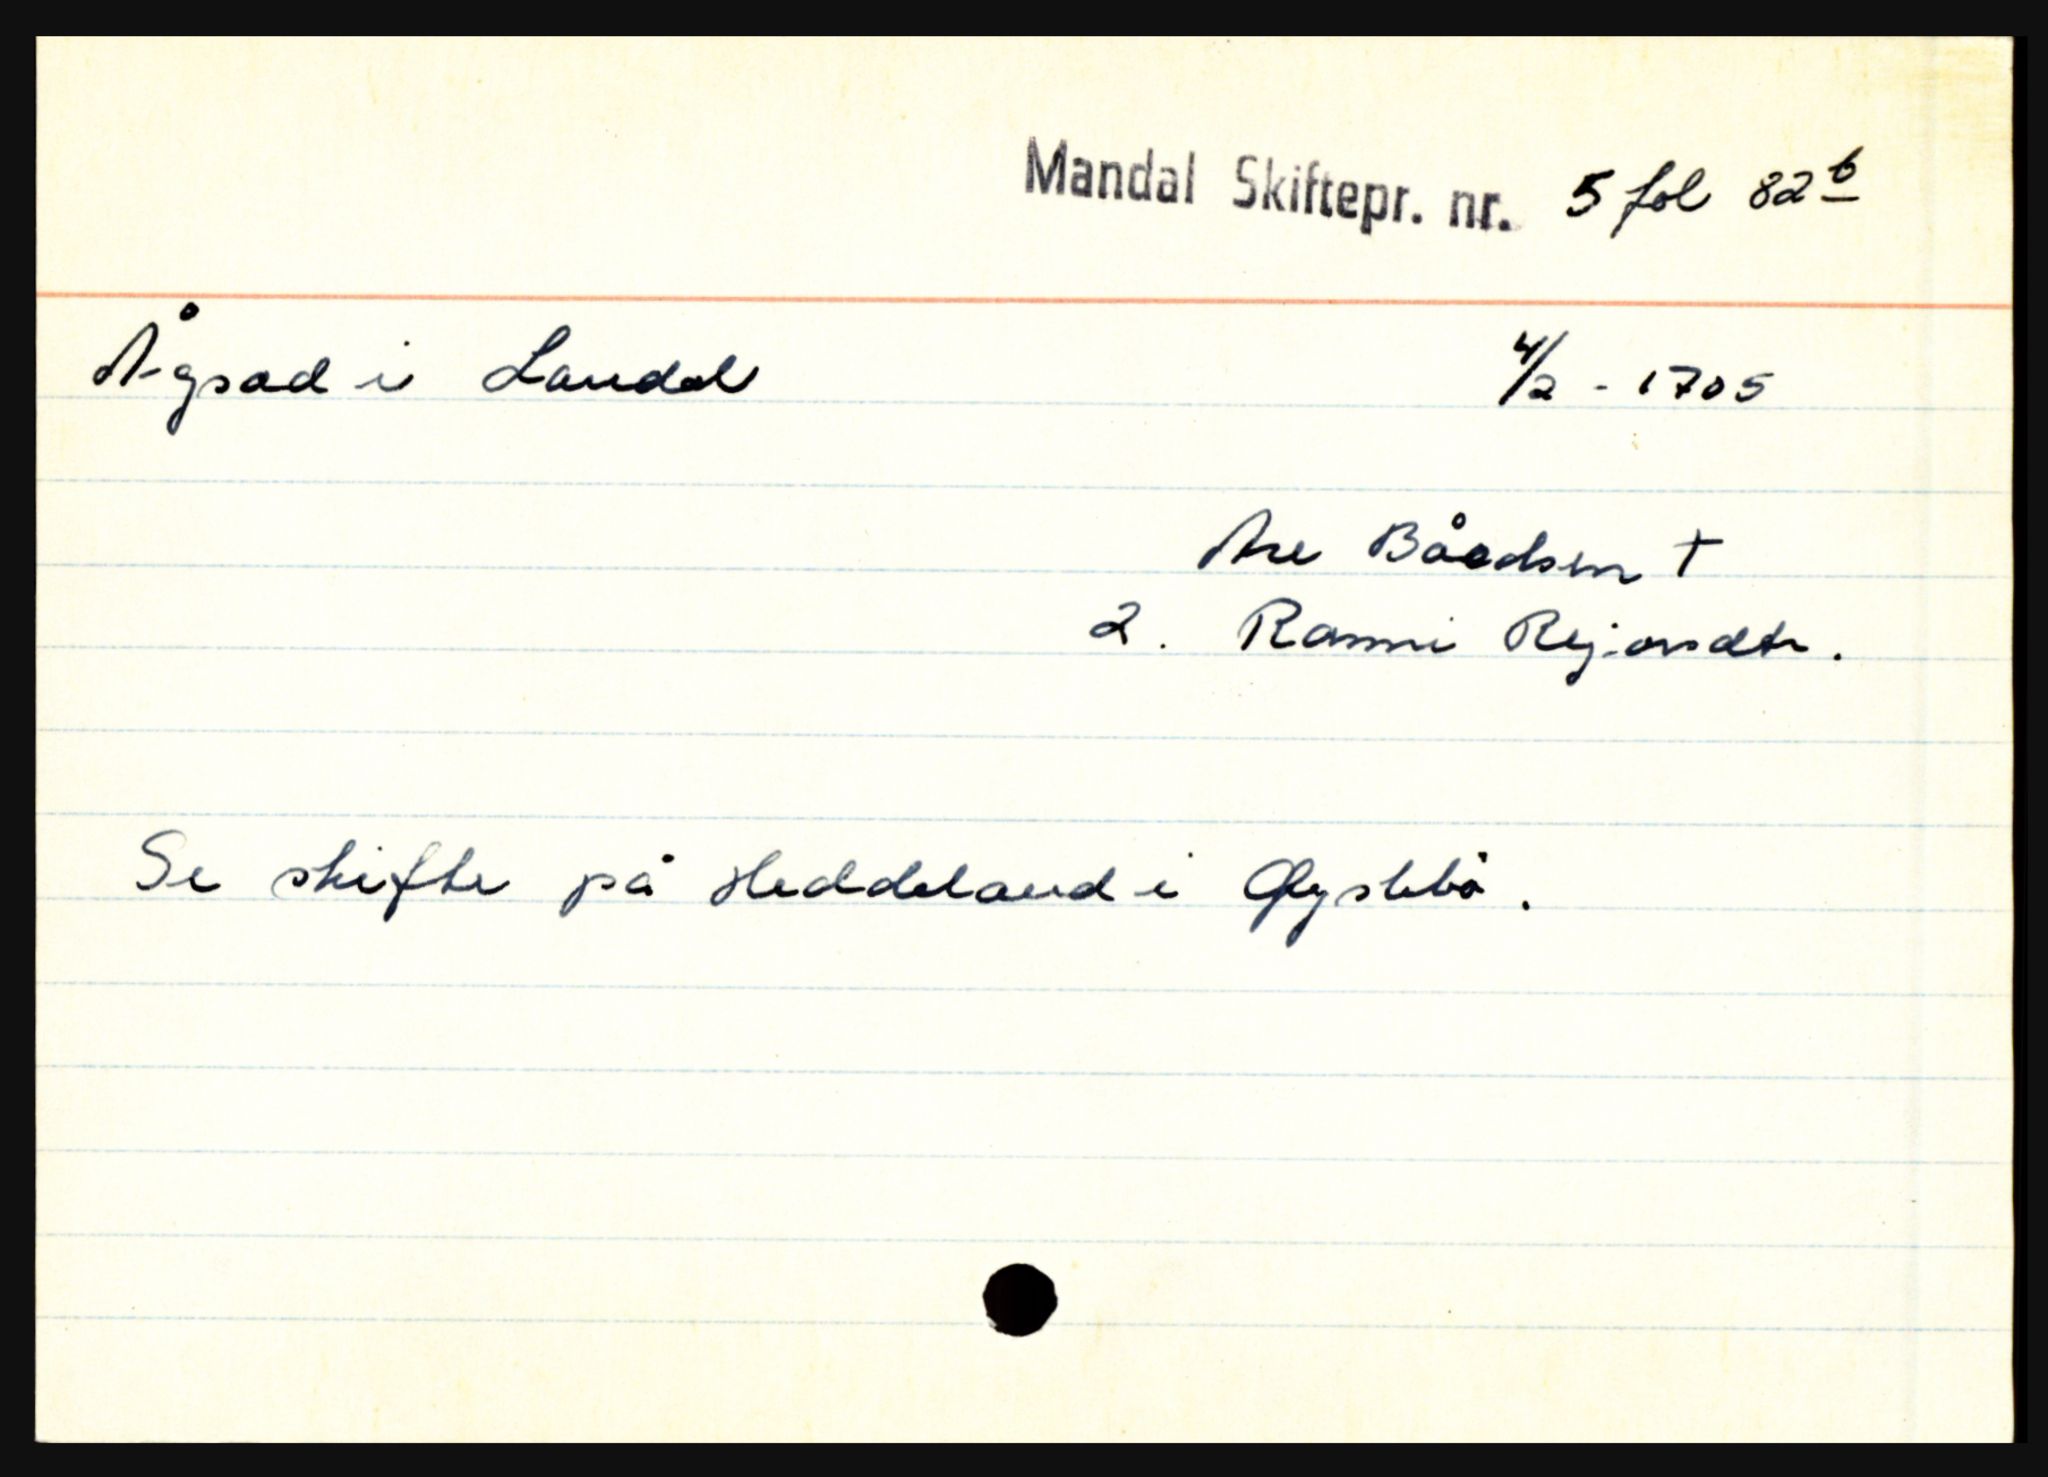 Mandal Skiftepr. nr. 5 fol 82 b
Ågsad i Laudal 4/2 - 1705
Are Bårdsen †
2. Ranni Rejarsdtr.
Se skifte på Heddeland i Øyslebö.